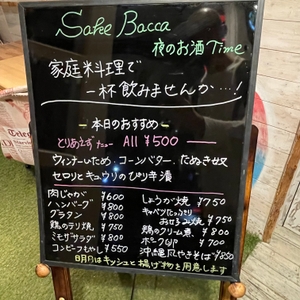 Sake Bacca
夜のお酒Time
家庭料理で
一杯飲みませんか…!
本日のおすすめ
とりあえずメニュー All ¥500
ウィンナーいため・コーンバター・たぬき奴
セロリとキュウリのぴり辛漬
肉じゃが ¥600
ハンバーグ ¥800
グラタン ¥800
鶏のテリ焼 ¥750
ミモザサラダ ¥800
コンビーフもやし ¥550
しょうが焼 ¥750
キャベツたっぷり
お好み焼 ¥750
鶏のクリーム煮 ¥800
ポークG/P ¥700
沖縄風やきそば ¥850
キッシュと揚げ物を用意します